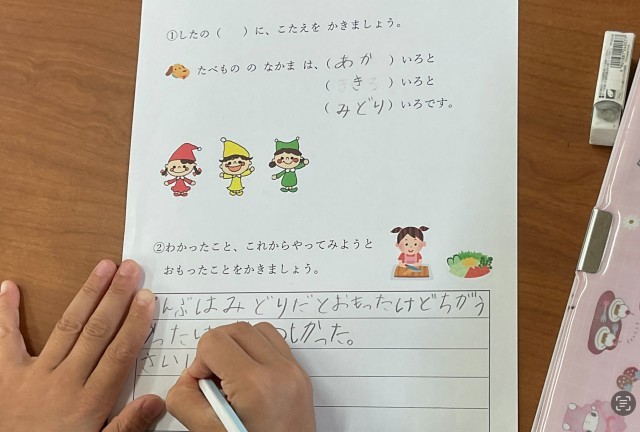 ①したの（　　）に、こたえを かきましょう。
たべもの の なかま は、（あか）いろと
（き）いろと
（みどり）いろです。
②わかったこと、これからやってみようと
おもったことをかきましょう。
んぶはみどりだとおもったけどちがう
ったけ しかった。
さい